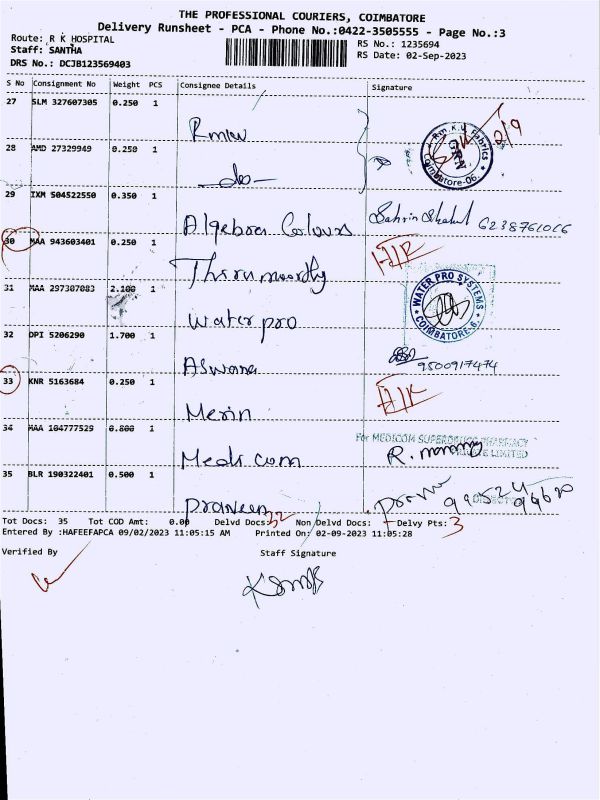 THE PROFESSIONAL COURIERS, COIMBATORE
Delivery Runsheet - PCA - Phone No.:0422-3505555 - Page No.:3
Route: R K HOSPITAL
RS No.: 1235694
Staff: SANTHA
RS Date: 02-Sep-2023
DRS No.: DCJB123569403
S No Consignment No Weight PCS Consignee Details Signature
27 SLM 327607305 0.250 1
28 AMD 27329949 0.250 1
-do-
29 IXM 504522550 0.350 1
Algebra Colours
30 MAA 943603401 0.250 1
Thirumoorthy
31 MAA 297307083 2.100 1
Water pro
WATER PRO SYSTEMS
COIMBATORE-6.
32 OPI 5206290 1.700 1
Aswana
9500917474
33 KNR 5163684 0.250 1
Merin
34 MAA 104777529 0.800 1
Medi com
For MEDICOM SUPERDRUGS PHARMACY
PRIVATE LIMITED
35 BLR 190322401 0.500 1
Praveen
DIRECTOR
Tot Docs: 35 Tot COD Amt: 0.00 Delvd Docs: 32 Non Delvd Docs: Delvy Pts: 3
Entered By :HAFEEFAPCA 09/02/2023 11:05:15 AM Printed On: 02-09-2023 11:05:28
Verified By Staff Signature